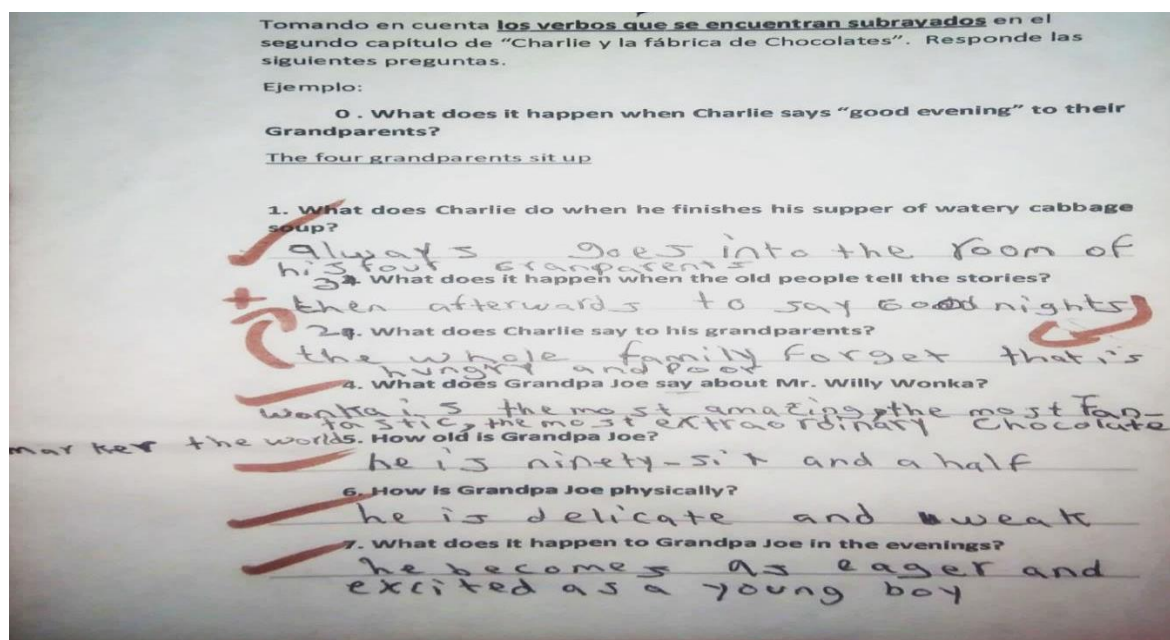 Tomando en cuenta los verbos que se encuentran subrayados en el
segundo capítulo de “Charlie y la fábrica de Chocolates”. Responde las
siguientes preguntas.
Ejemplo:
0 . What does it happen when Charlie says “good evening” to their
Grandparents?
The four grandparents sit up
1. What does Charlie do when he finishes his supper of watery cabbage
soup?
always goes into the room of
his four Granparents
What does it happen when the old people tell the stories?
then afterwards to say Good nights
What does Charlie say to his grandparents?
the whole family forget that is
hungry and Poor
4. What does Grandpa Joe say about Mr. Willy Wonka?
wonka is the most amazing, the most fan-
tastic, the most extraordinary Chocolate
marker the world
5. How old is Grandpa Joe?
he is ninety-six and a half
6. How is Grandpa Joe physically?
he is delicate and weak
7. What does it happen to Grandpa Joe in the evenings?
he becomes as eager and
excited as a young boy